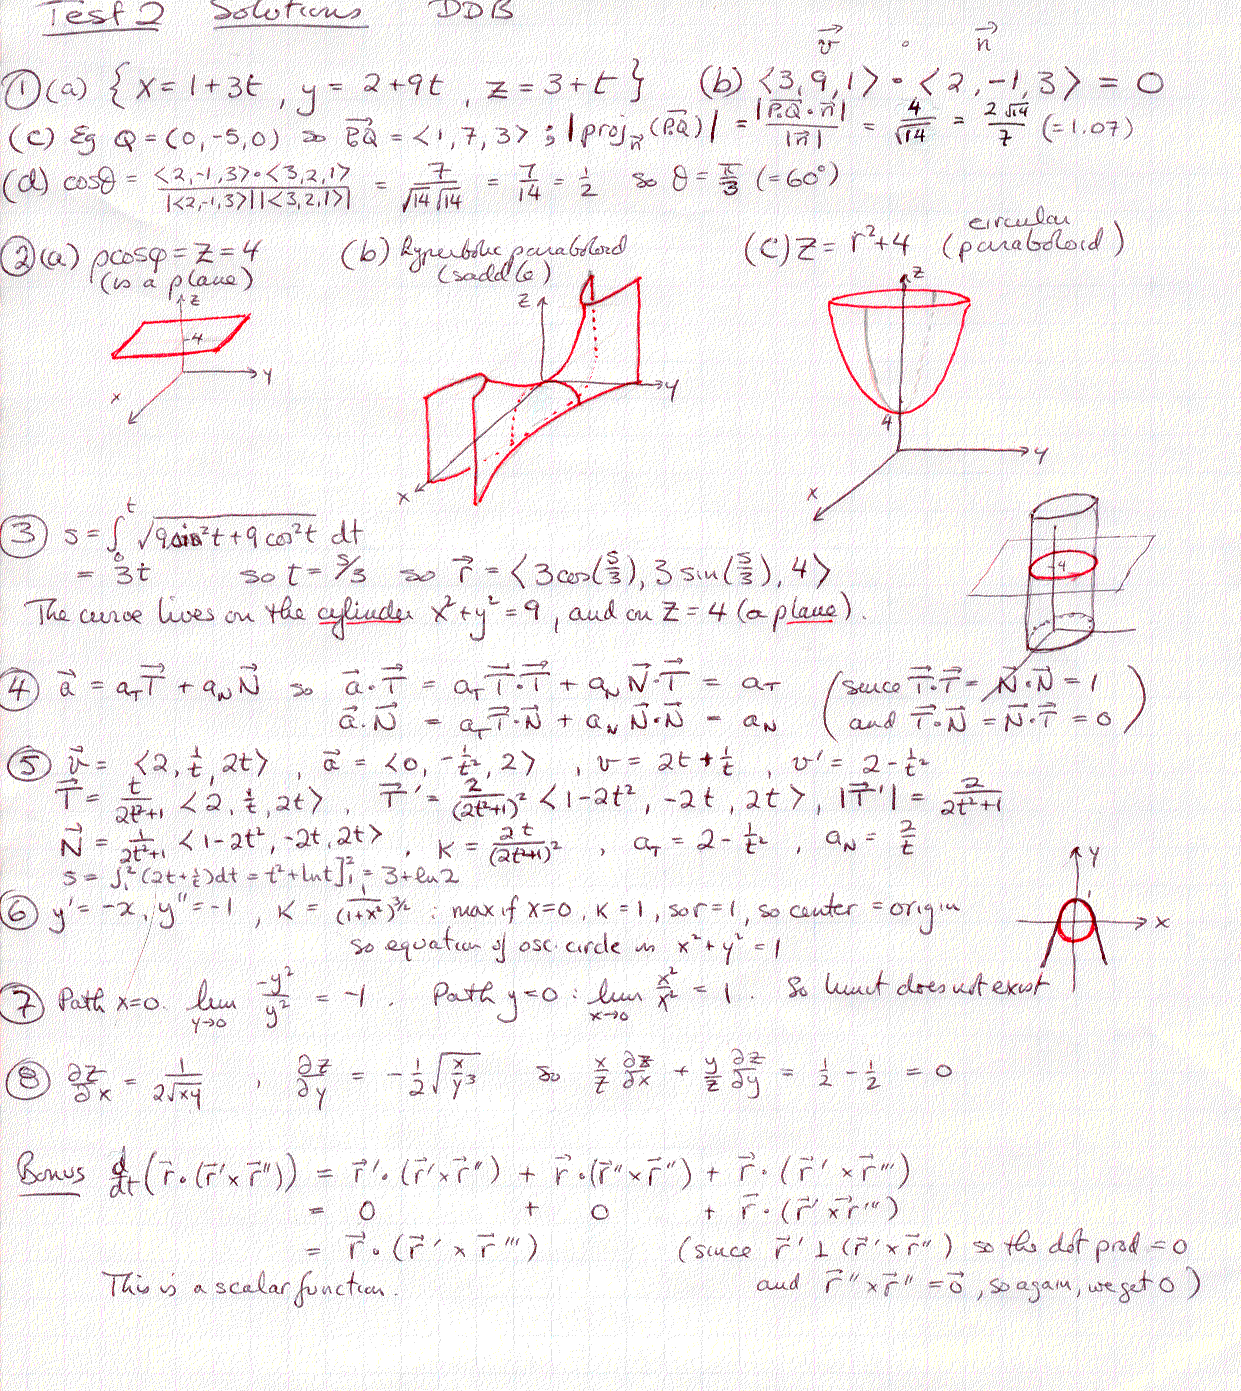 Test 2 Solutions DDB
v⃗ · n⃗
① (a) { x = 1+3t , y = 2+9t , z = 3+t } (b) <3,9,1> • <2,-1,3> = 0
(c) Eg Q = (0,-5,0) so P₀Q⃗ = <1,7,3> ; |proj_n⃗ (P₀Q⃗)| = |P₀Q⃗ · n⃗| / |n⃗| = 4/√14 = 2√14/7 (=1.07)
(d) cosθ = <2,-1,3>·<3,2,1> / |<2,-1,3>||<3,2,1>| = 7/√14√14 = 7/14 = 1/2 so θ = π/3 (=60°)
② (a) ρcosφ = z = 4 (b) Hyperbolic paraboloid (c) z = r²+4 (circular paraboloid)
(is a plane) (saddle)
z z z
4 y y 4 y
x x x
③ s = ∫₀ᵗ √(9sin²t + 9cos²t) dt
= 3t so t = s/3 so r⃗ = <3cos(s/3), 3sin(s/3), 4>
4
The curve lives on the cylinder x²+y²=9, and on z=4 (a plane).
④ a⃗ = a_T T⃗ + a_N N⃗ so a⃗·T⃗ = a_T T⃗·T⃗ + a_N N⃗·T⃗ = a_T (since T⃗·T⃗ = N⃗·N⃗ = 1
a⃗·N⃗ = a_T T⃗·N⃗ + a_N N⃗·N⃗ = a_N and T⃗·N⃗ = N⃗·T⃗ = 0)
⑤ v⃗ = <2, 1/t, 2t> , a⃗ = <0, -1/t², 2> , v = 2t + 1/t , v' = 2 - 1/t²
T⃗ = t/(2t²+1) <2, 1/t, 2t> , T⃗' = 2/(2t²+1)² <1-2t², -2t, 2t> , |T⃗'| = 2/(2t²+1)
N⃗ = 1/(2t²+1) <1-2t², -2t, 2t> , K = 2t/(2t²+1)² , a_T = 2 - 1/t² , a_N = 2/t
s = ∫₁² (2t+1/t)dt = t²+ln t]₁² = 3+ln2
⑥ y' = -x, y'' = -1 , K = 1/(1+x²)^(3/2) : max if x=0, K=1, so r=1, so center = origin
so equation of osc. circle is x²+y² = 1
y x
⑦ Path x=0. lim y→0 -y²/y² = -1 . Path y=0 : lim x→0 x²/x² = 1 . So limit does not exist
⑧ ∂z/∂x = 1/(2√xy) , ∂z/∂y = -1/2 √(x/y³) so x/z ∂z/∂x + y/z ∂z/∂y = 1/2 - 1/2 = 0
Bonus d/dt (r⃗·(r⃗'×r⃗'')) = r⃗'·(r⃗'×r⃗'') + r⃗·(r⃗''×r⃗'') + r⃗·(r⃗'×r⃗''')
= 0 + 0 + r⃗·(r⃗'×r⃗''')
= r⃗·(r⃗'×r⃗''') (since r⃗' ⊥ (r⃗'×r⃗'') so the dot prod = 0
This is a scalar function. and r⃗''×r⃗'' = 0⃗, so again, we get 0)